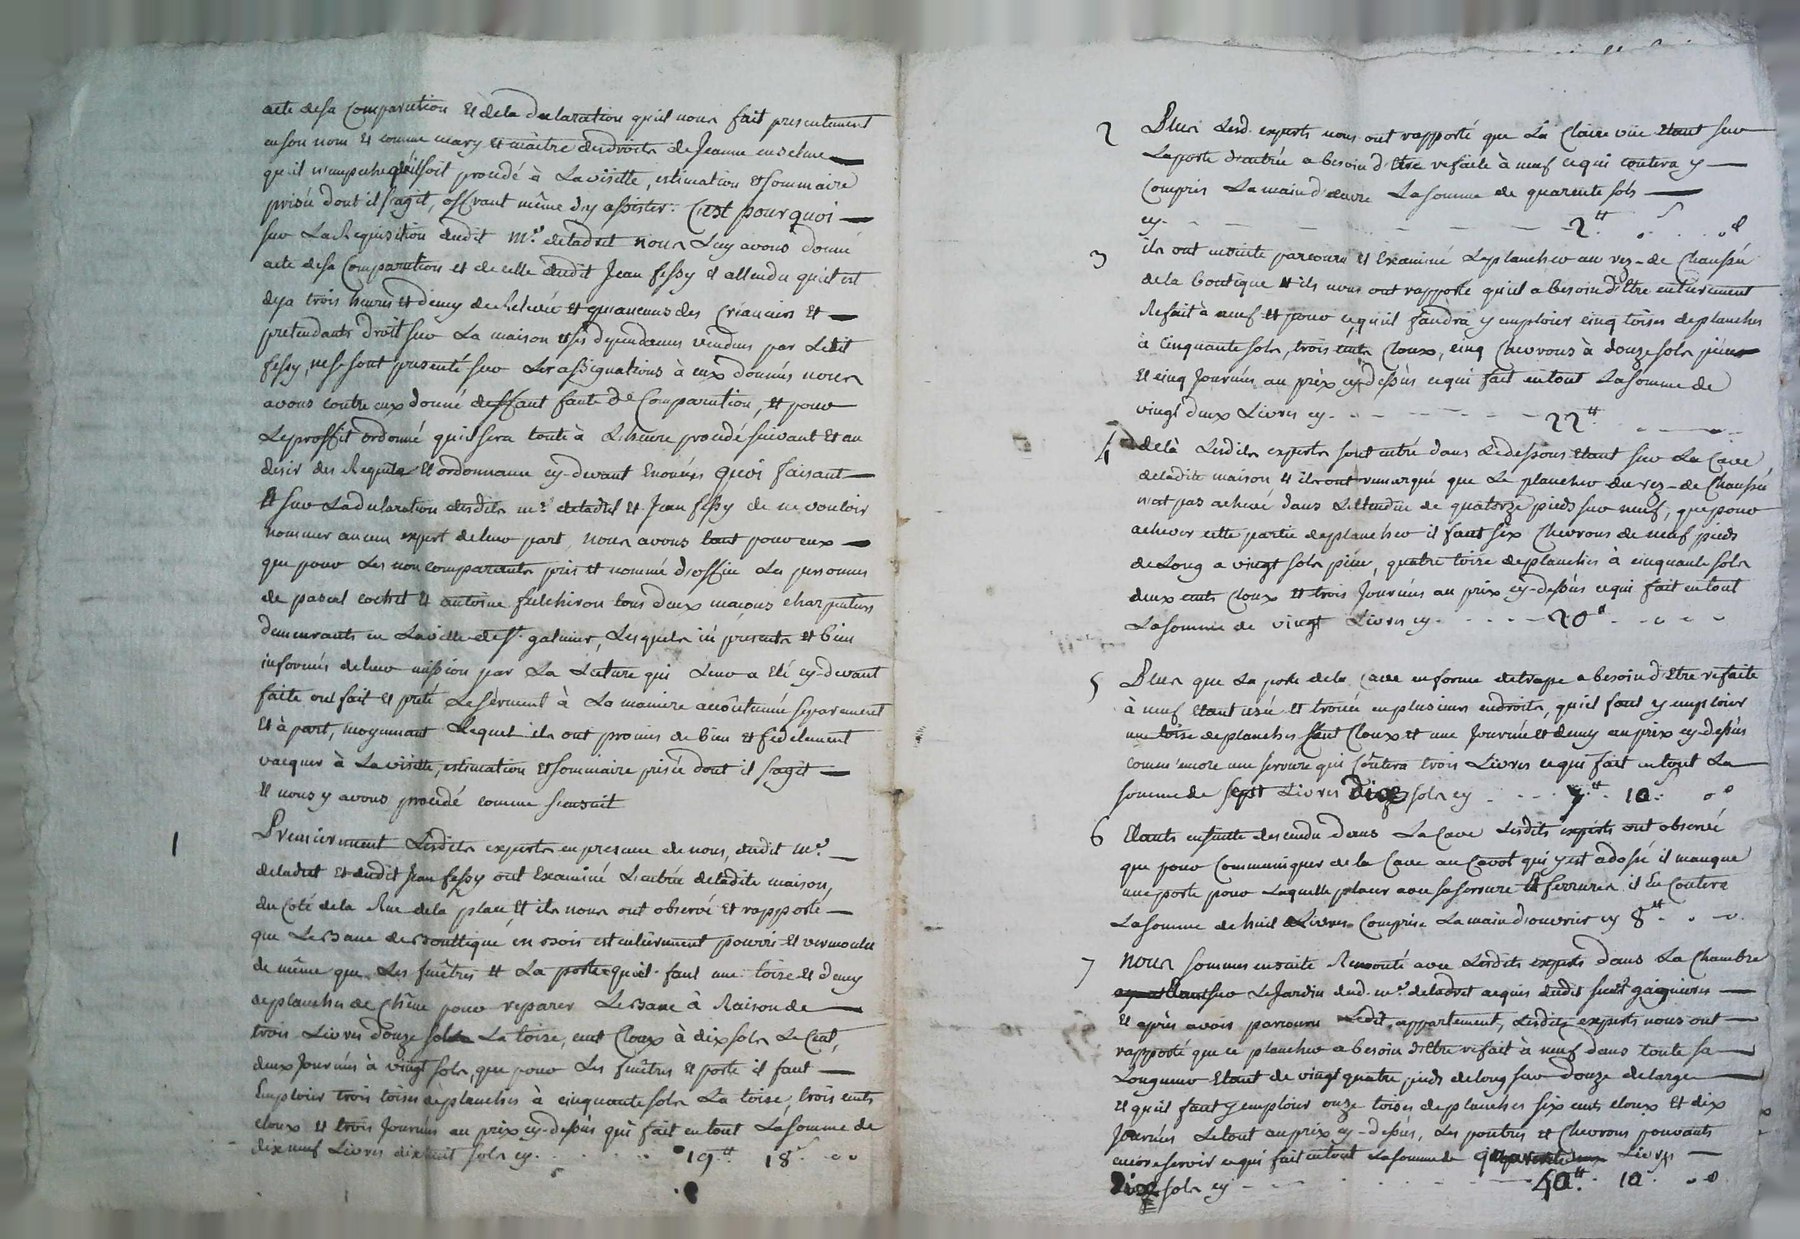 acte de sa Comparution et de la declaration qu'il nous fait presentement
en son nom et comme mary et maître des droits de Jeanne enselme
qu'il n'empeche qu'il soit procédé à La visitte, estimation et sommaire
prisée dont il s'agit, offrant même d'y assister. C'est pourquoi
sur La Requisition dudit Mr. deladret nous Luy avons donné
acte de sa Comparution et de celle dudit Jean fessy et attendu qu'il est
deja trois heures et demy de Relevée et qu'aucuns des Créanciers et
pretendants droit sur La maison et ses dependances vendues par Ledit
fessy, ne se sont presenté sur Les assignations à eux données nous
avons contre eux donné deffaut faute de Comparution, et pour
Le proffit ordonné qu'il sera tout à L'heure procédé suivant et au
desir des Requête et ordonnance cy-devant Enoncées quoi faisant
et sur La declaration desdits mr. deladret et Jean fessy de ne vouloir
nommer aucun expert de leur part, nous avons tant pour eux
que pour Les non comparants pris et nommé d'office Les personnes
de pascal cochet et antoine fulchiron tous deux maçons charpentiers
demeurants en La ville de St. galmier, Lesquels ici présents et bien
informés de leur mission par La Lecture qui Leur a eté cy-devant
faite ont fait et prêté Le serment à La maniere accoutumée separement
Et à part, moyennant Lequel ils ont promis de bien et fidelement
vacquer à La visitte, estimation et sommaire prisée dont il s'agit
et nous y avons procédé comme s'ensuit
1 Premierement Lesdits experts en presence de nous, dudit Mr.
deladret et dudit Jean fessy ont Examiné L'entrée de ladite maison,
du Coté de la Rue de la place et ils nous ont observé et rapporté
que Le Banc de Bouttique en bois est entièrement pourri et vermoulu
de même que Les fenêtres et La porte qu'il faut une toise et demy
de planches de chêne pour reparer Le Banc à Raison de
trois Livres douze sols La toise, cent Cloux à dix sols Le Cent,
deux Journées à vingt sols, que pour Les fenêtres et porte il faut
Emploier trois toises de planches à cinquante sols La toise, trois cents
cloux et trois Journées au prix cy-dessus qui fait en tout La somme de
dix neuf Livres dix huit sols cy. 19ᵗᵗ 18ˢ
2 Plus Lesd. experts nous ont rapporté que La Claire vüe étant sur
La porte d'entrée a besoin d'être refaite à neuf ce qui coutera y
Compris La main d'œuvre La somme de quarente sols
cy. 2ᵗᵗ
3 ils ont ensuite parcouru et Examiné Le plancher au rez-de Chaussée
de la boutique et ils nous ont rapporté qu'il a besoin d'être entièrement
Refait à neuf et pour ce qu'il faudra y emploier cinq toises de planches
à Cinquante sols, trois cents Cloux, cinq Chevrons à douze sols pièce
Et cinq Journées au prix cy-dessus ce qui fait en tout La somme de
vingt deux Livres cy. 22ᵗᵗ
4 de là Lesdits experts sont entré dans Le dessous étant sur La Cave
de ladite maison et ils ont remarqué que Le plancher du rez-de Chaussée
n'est pas achevé dans L'étendüe de quatorze pieds sur neuf, que pour
achever cette partie de plancher il faut six Chevrons de neuf pieds
de Long a vingt sols pièce, quatre toise de planches à cinquante sols
deux cents cloux et trois Journées au prix cy-dessus ce qui fait en tout
La somme de vingt Livres cy. 20ᵗᵗ
5 Plus que La porte de la Cave en forme de trape a besoin d'être refaite
à neuf étant usée et trouée en plusieurs endroits, qu'il faut y emploier
une toise de planches Cent Cloux et une Journée et demy au prix cy-dessus
comme encore une serrure qui Coutera trois Livres ce qui fait en tout La
somme de sept Livres Dix sols cy 7ᵗᵗ 10
6 étants ensuitte descendu dans La Cave Lesdits experts ont observé
que pour Communiquer de la Cave au Cavot qui y est adossé il manque
une porte pour Laquelle placer avec sa serrure et ferrures il En Coutera
La somme de huit Livres Comprise La main d'ouvrier cy 8ᵗᵗ
7 nous sommes ensuite Remonté avec Lesdits experts dans La Chambre
étant sur Le Jardin dud. mr. deladret acquis dudit
Et après avoir parcouru Ledit appartement, Lesdits experts nous ont
rapporté que ce plancher a besoin d'être refait à neuf dans toute sa
Longueur étant de vingt quatre pieds de long sur douze de large
et qu'il faut y emploier onze toises de planches six cents cloux et dix
Journées Le tout au prix cy-dessus, Les poutres et Chevrons pouvants
encore servir ce qui fait en tout La somme de quarente Livres
Dix sols cy 40ᵗᵗ 10